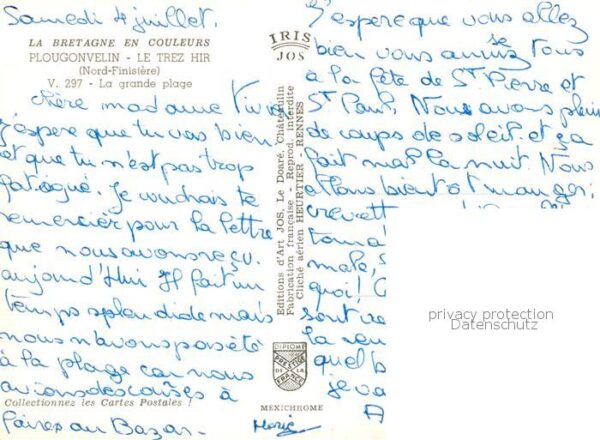 Samedi 4 juillet.
LA BRETAGNE EN COULEURS
PLOUGONVELIN - LE TREZ HIR
(Nord-Finistère)
V. 297 - La grande plage
chère madame
j'espère que tu vas bien
et que tu n'est pas trop
fatigué. Je voudrais te
remercier pour la lettre
que nous avons reçu.
aujourd'Hui Il fait un
temps splendide mais
nous n'avons pas été
à la plage car nous
avions des courses à
Collectionnez les Cartes Postales !
faires au Bazar.
IRIS
JOS
Editions d'Art JOS, Le Doaré, Châteaulin
Fabrication française - Reprod. interdite
Cliché aérien HEURTIER - RENNES
DIPLOME
PRESTIGE
DE LA
FRANCE
MEXICHROME
J'espère que vous allez
bien vous amusez tous
se
à la fête de St Pierre et
St Paul. Nous avons plein
de coups de soleil et ça
fait mal la nuit. Nous
allons bientôt manger:
crevett
toma
quoi! C
sont ve
quel
je va
privacy protection
Datenschutz